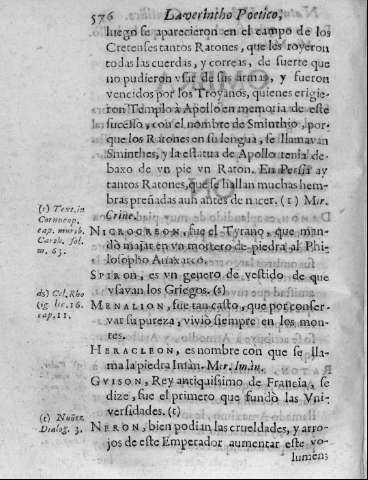 576 Laverintho Poetico,
luego se aparecieron en el campo de los
Cretenses tantos Ratones, que les royeron
todas las cuerdas, y correas, de suerte que
no pudieron vsar de sus armas, y fueron
vencidos por los Troyanos, quienes erigie-
ron Templo à Apollo en memoria de este
sucesso, con el nombre de Sminthio, por-
que los Ratones en su lengua, se llamavan
Sminthes, y la estatua de Apollo tenia de-
baxo de vn pie vn Raton. En Persia ay
tantos Ratones, que se hallan muchas hem-
bras preñadas aun antes de nacer. (1) Mir.
Crine.
(1) Text. in
Cornucop.
cap. murib.
Carth. fol.
m. 63.
NIGROCREON, fue el Tyrano, que man-
dò majar en vn mortero de piedra al Phi-
losopho Anaxarco.
SPIRON, es vn genero de vestido de que
vsavan los Griegos. (s)
cap. 11.
MENALION, fue tan casto, que por conser-
var su pureza, viviò siempre en los mon-
tes.
HERACLEON, es nombre con que se lla-
ma la piedra Imàn. Mir. Imàn.
GVISON, Rey antiquissimo de Francia, se
dize, fue el primero que fundò las Vni-
versidades. (t)
(t) Nuñez
Dialog. 3.
NERON, bien podian las crueldades, y arro-
jos de este Emperador aumentar este vo-
lumen;